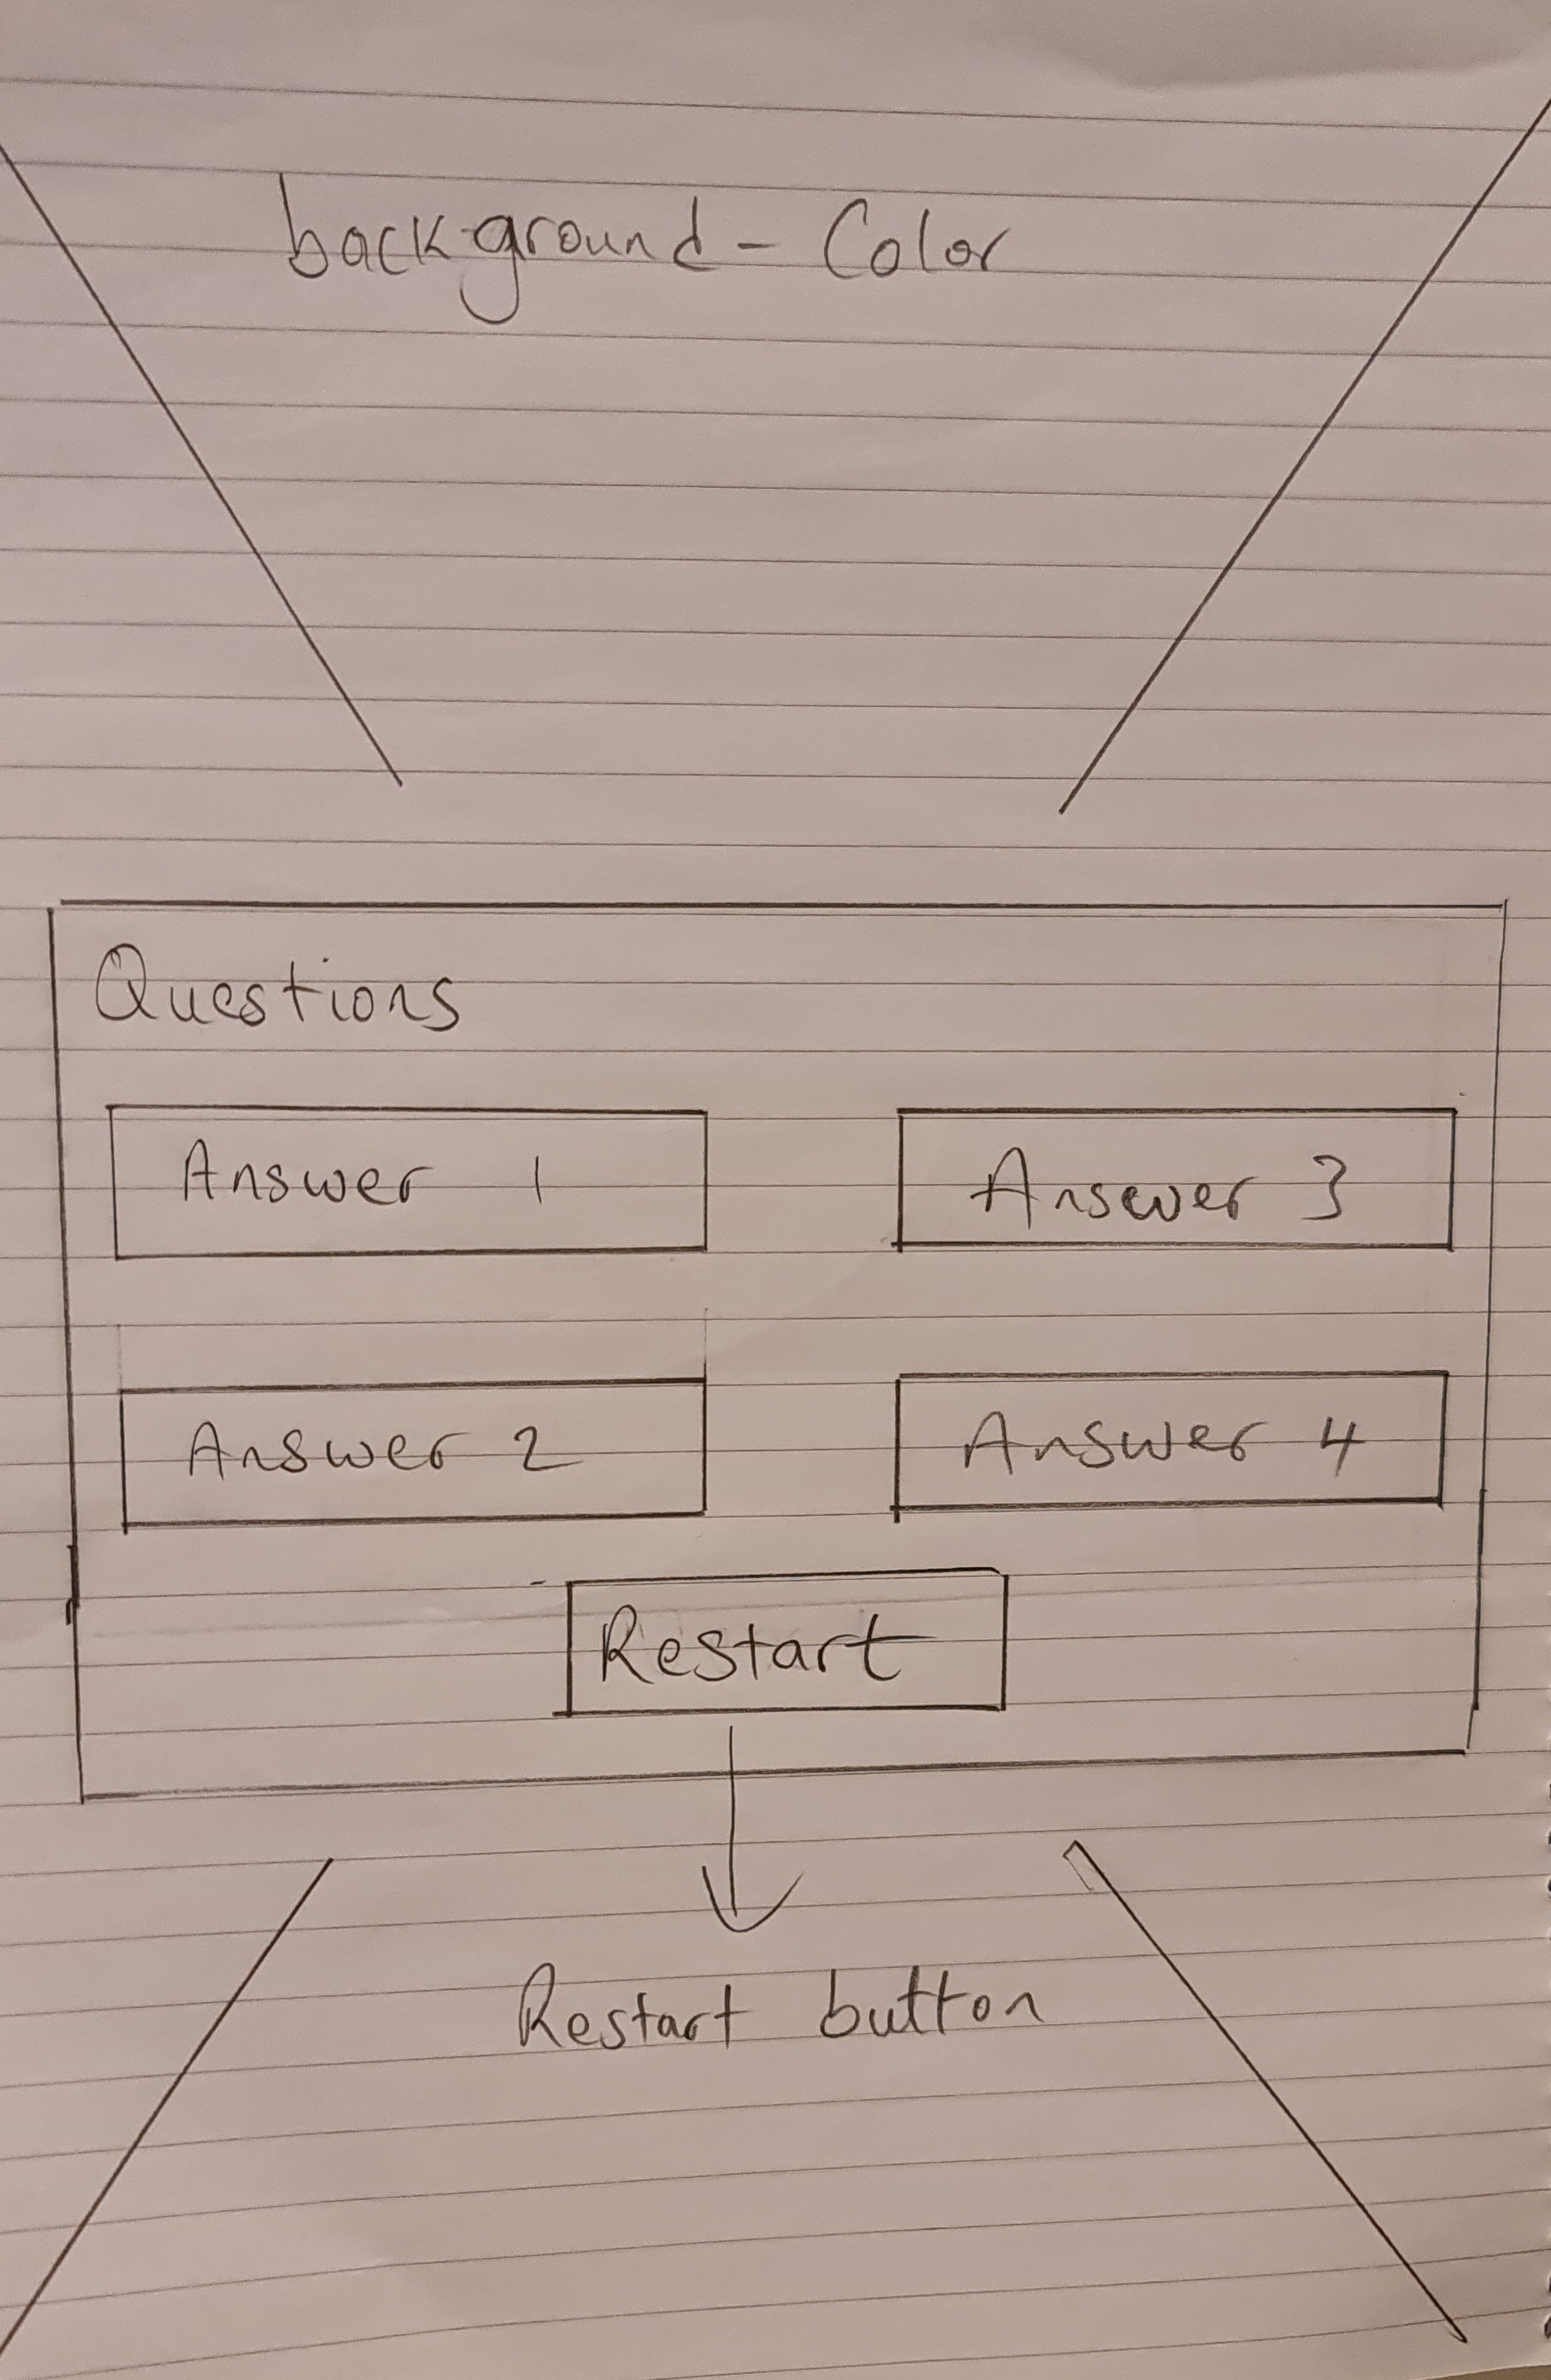 background - Color
Questions
Answer 1
Answer 3
Answer 2
Answer 4
Restart
Restart button